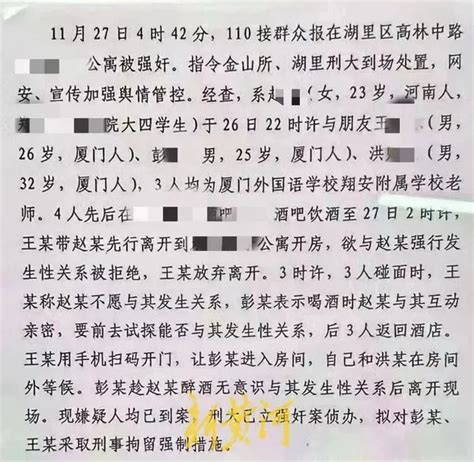 11月27日4时42分，110接群众报在湖里区高林中路
公寓被强奸。指令金山所、湖里刑大到场处置，网
安、宣传加强舆情管控。经查，系赵（女，23岁，河南人，
院大四学生）于26日22时许与朋友王（男，
26岁，厦门人）、彭 男，25岁，厦门人）、洪（男，
32岁，厦门人），3人均为厦门外国语学校翔安附属学校老
师。4人先后在 吧 酒吧饮酒至27日2时许，
王某带赵某先行离开到 公寓开房，欲与赵某强行发
生性关系被拒绝，王某放弃离开。3时许，3人碰面时，王
某称赵某不愿与其发生关系，彭某表示喝酒时赵某与其互动
亲密，要前去试探能否与其发生性关系，后3人返回酒店。
王某用手机扫码开门，让彭某进入房间，自己和洪某在房间
外等候。彭某趁赵某醉酒无意识与其发生性关系后离开现
场。现嫌疑人均已到案，刑大已立强奸案侦办，拟对彭某、
王某采取刑事拘留强制措施。
新黄河